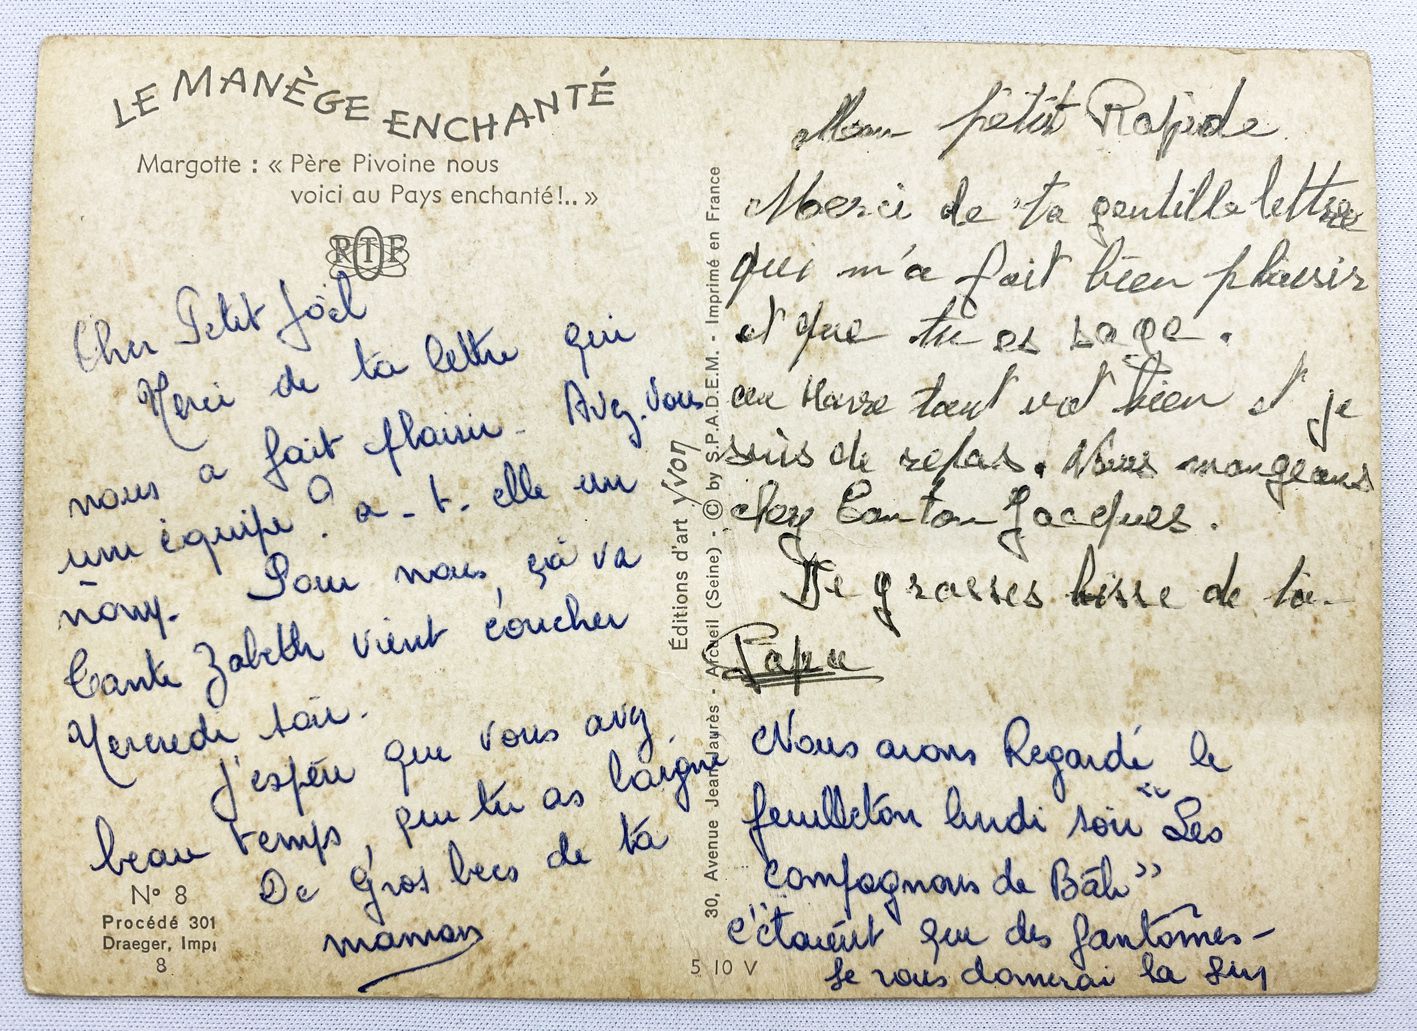 LE MANÈGE ENCHANTÉ
Margotte : « Père Pivoine nous
voici au Pays enchanté!.. »
RTF
Cher Petit Joël
Merci de ta lettre qui
nous a fait plaisir - Avez-vous
une équipe ? a-t-elle un
nom. Pour nous, ça va
Tante Zabeth vient coucher
Mercredi soir.
J'espère que vous avez
beau temps que tu as
De Gros becs de ta
maman
N° 8
Procédé 301
Draeger, Imp
8
Éditions d'art yvon
30, Avenue Jean-Jaurès - Arcueil (Seine) - © by S.P.A.D.E.M. - Imprimé en France
5 10 V
Mon petit Rapide
Merci de ta gentille lettre
qui m'a fait bien plaisir
et que tu es sage.
au Havre tout vat bien et je
suis de repas. Nous mangeons
chez Tonton Jacques.
De grosses bisse de ton
Papa
Nous avons Regardé le
feuilleton lundi soir "Les
compagnons de Bâh"
c'étaient que des fantômes -
Je vous donnerai la